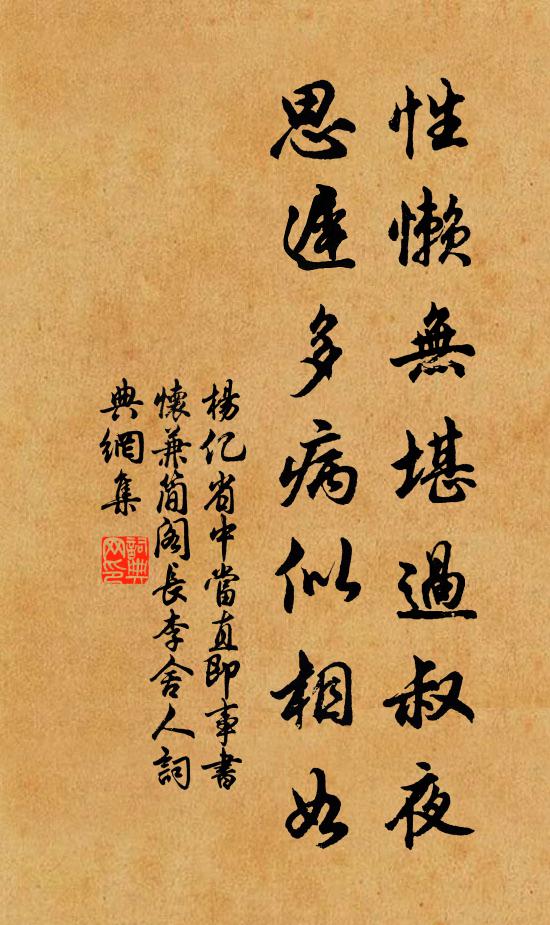 性懶無堪過叔夜
思遲多病似相如
楊亿省中當直即事書
懷兼简阁長李舍人詞
典網集
詞典網印